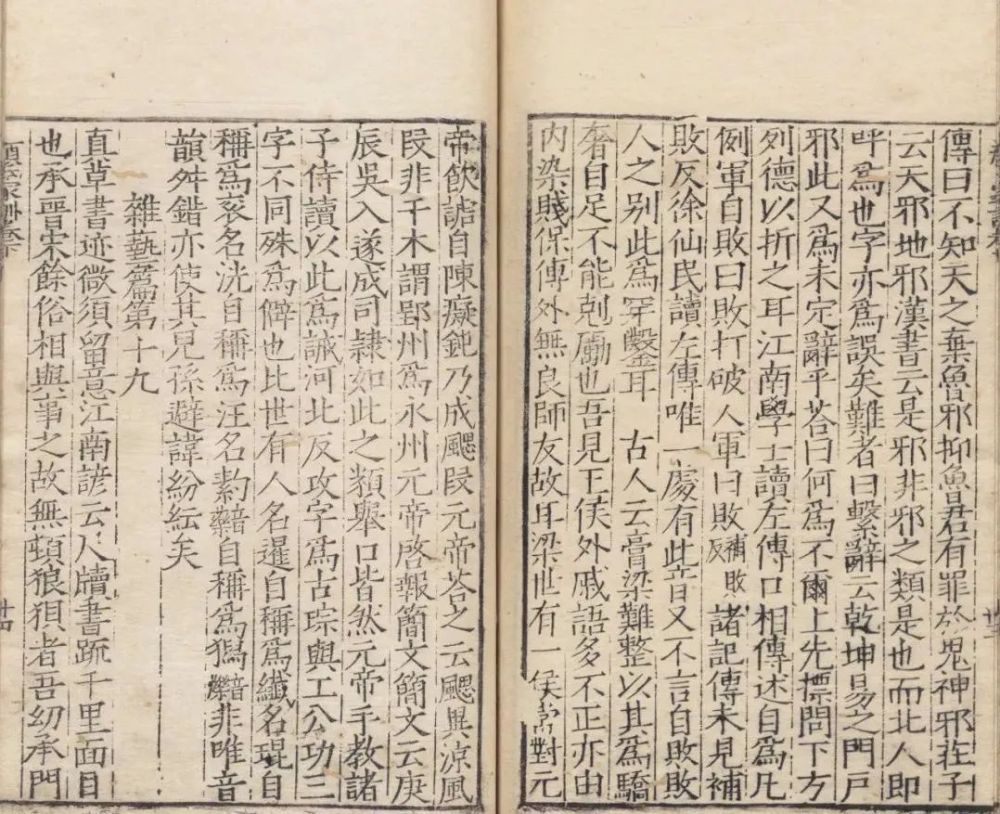 傳曰不知天之棄魯邪抑魯君有罪於鬼神邪莊子
云天邪地邪漢書云是邪非邪之類是也而北人即
呼爲也字亦爲誤矣難者曰繫辭云乾坤易之門戶
邪此又爲未定辭乎荅曰何爲不爾上先標問下方
列德以折之耳江南學士讀左傳口相傳述自爲凡
例軍自敗曰敗打破人軍曰敗補敗反諸記傳未見補
敗反徐仙民讀左傳唯一處有此音又不言自敗敗
人之別此爲穿鑿耳 古人云膏梁難整以其爲驕
奢自足不能剋勵也吾見王侯外戚語多不正亦由
內染賤保傅外無良師友故耳梁世有一侯常對元
帝飲謔自陳癡鈍乃成颸段元帝荅之云颸異涼風
段非干木謂郢州爲永州元帝啓報簡文簡文云庚
辰吳入遂成司隸如此之類舉口皆然元帝手教諸
子侍讀以此爲誡河北反攻字爲古琮與工公功三
字不同殊爲僻也比世有人名暹自稱爲纖名琨自
稱爲衮名洸自稱爲汪名䋤音藥自稱爲獡音爍非唯音
韻舛錯亦使其兒孫避諱紛紜矣
雜藝篇第十九
真草書迹微須留意江南諺云尺牘書䟽千里面目
也承晉宋餘俗相與事之故無頓狼狽者吾幼承門